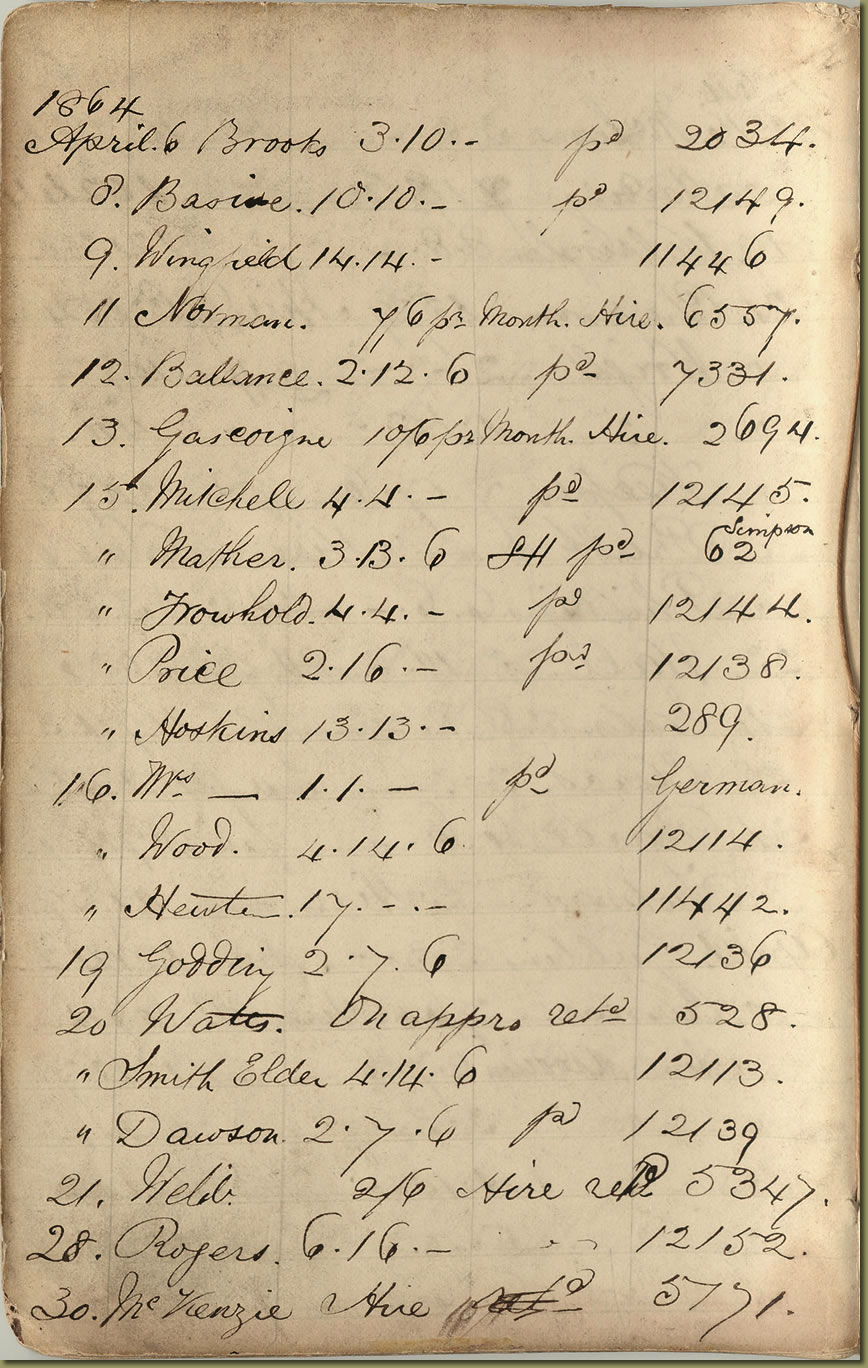 1864
April. 6 Brooks 3.10.- pd 2034.
8. Basive. 10.10.- pd 12149.
9. Wingfield 14.14.- 11446
11 Norman. 7/6 pr Month. Hire. 6557.
12. Ballance. 2.12.6 pd 7331.
13. Gascoigne 10/6 pr Month. Hire. 2694.
15. Mitchell 4.4.- pd 12145.
" Mather. 3.13.6 SH pd 62 Simpson
" Trowhold. 4.4.- pd 12144.
" Price 2.16.- pd 12138.
" Hoskins 13.13.- 289.
16. Mrs — 1.1.- pd German.
" Wood. 4.14.6 12114.
" 17.-.- 11442.
19 Godding 2.7.6 12136
20 Watts. On appro retd 528.
" Smith Elder 4.14.6 12113.
" Dawson. 2.7.6 pd 12139
21. Webb. 2/6 Hire retd 5347.
28. Rogers. 6.16.- 12152.
30. McKenzie Hire 5171.